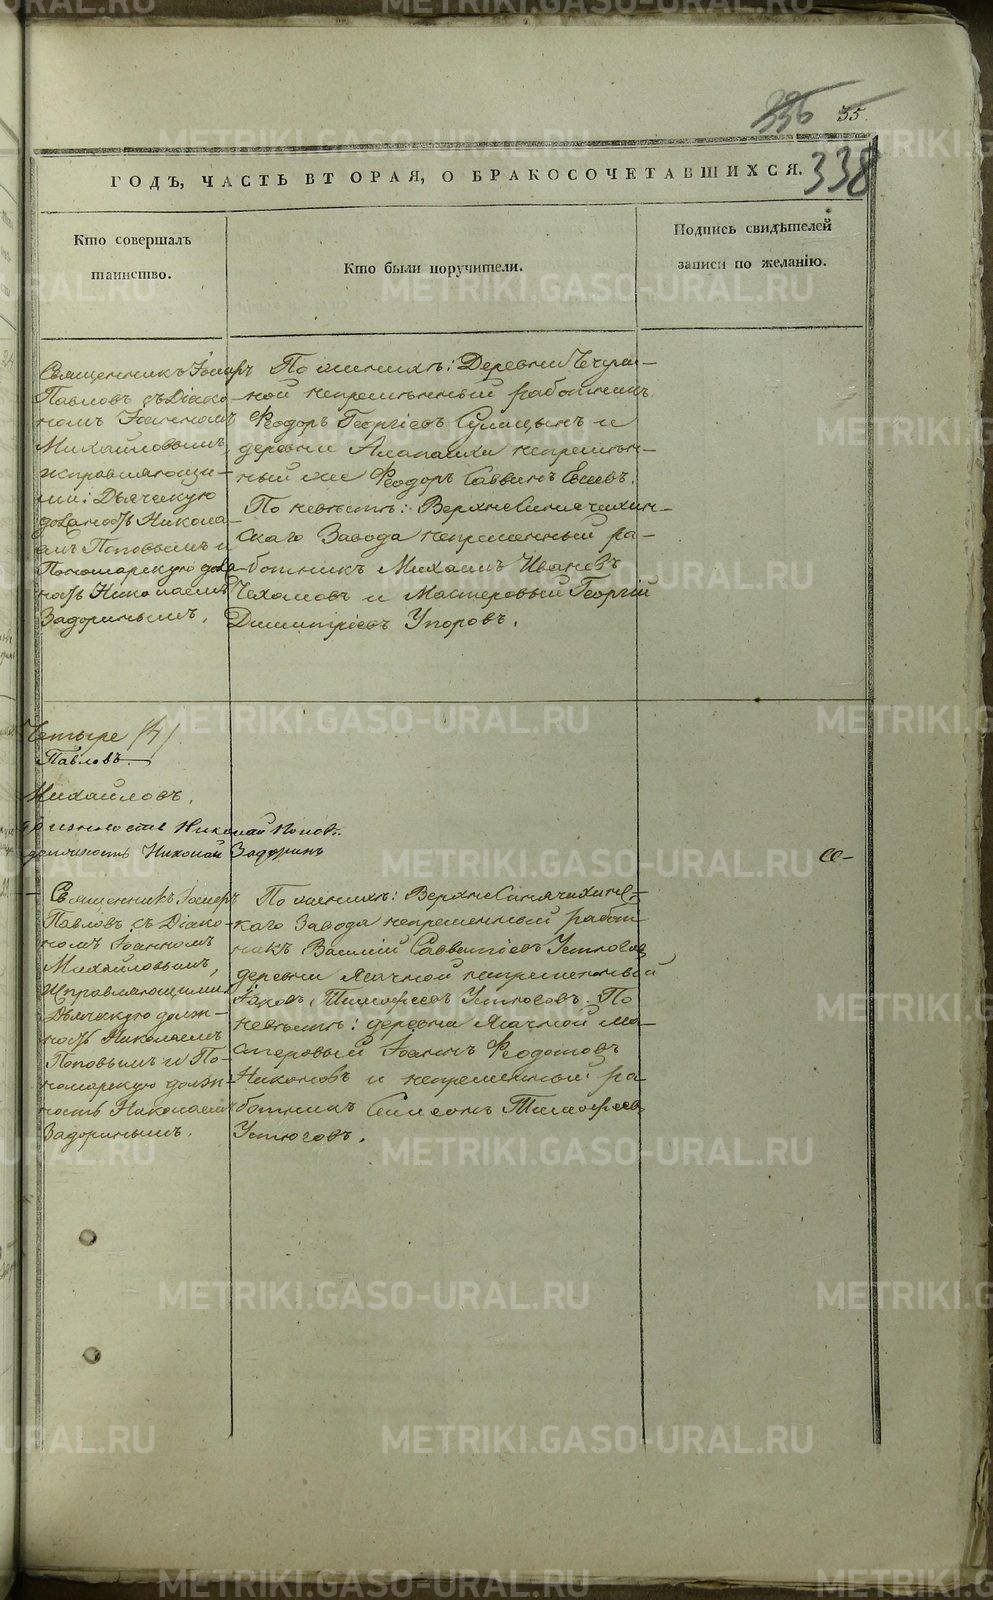 336 35.
338
ГОДЪ, ЧАСТЬ ВТОРАЯ, О БРАКОСОЧЕТАВШИХСЯ.
Кто совершалъ
таинство.
Кто были поручители.
Подпись свидѣтелей
записи по желанію.
Священникъ
Павловъ съ Діако-
номъ Іоанномъ
Михайловымъ,
исправляющи-
ми: Дьяческую
должность Никола-
емъ Поповымъ и
Пономарскую долж-
ность Николаемъ
Задоринымъ.
По женихѣ: Деревни
ной непремѣнный работникъ
Ѳеодоръ Георгіевъ и
деревни Алапаихи непремѣн-
ный же Ѳеодоръ Саввинъ
По невѣстѣ: ВерхнеСинячихин-
скаго Завода непременный ра-
ботникъ Михаилъ Ивановъ
Чехомовъ и Мастеровый Георгій
Димитріевъ Упоровъ.
Четыре (4)
Павловъ.
Михайловъ.
должность Николай Поповъ.
должность Николай Задоринъ
Священникъ
Павловъ съ Діако-
номъ Іоанномъ
Михайловымъ,
исправляющими
Дьяческую долж-
ность Николаемъ
Поповымъ и По-
номарскую долж-
ность Николаемъ
Задоринымъ.
По женихѣ: ВерхнеСинячихинс-
каго Завода непременный работ-
никъ Василій Савватіевъ Устюговъ
деревни Ясачной непременный
Іаковъ Тимофеевъ Устюговъ. По
невѣстѣ: деревни Ясачной ма-
стеровый Іоаннъ Ѳеодотовъ
Никоновъ и непременный ра-
ботникъ Симеонъ Тимофеевъ
Устюговъ.
METRIKI.GASO-URAL.RU